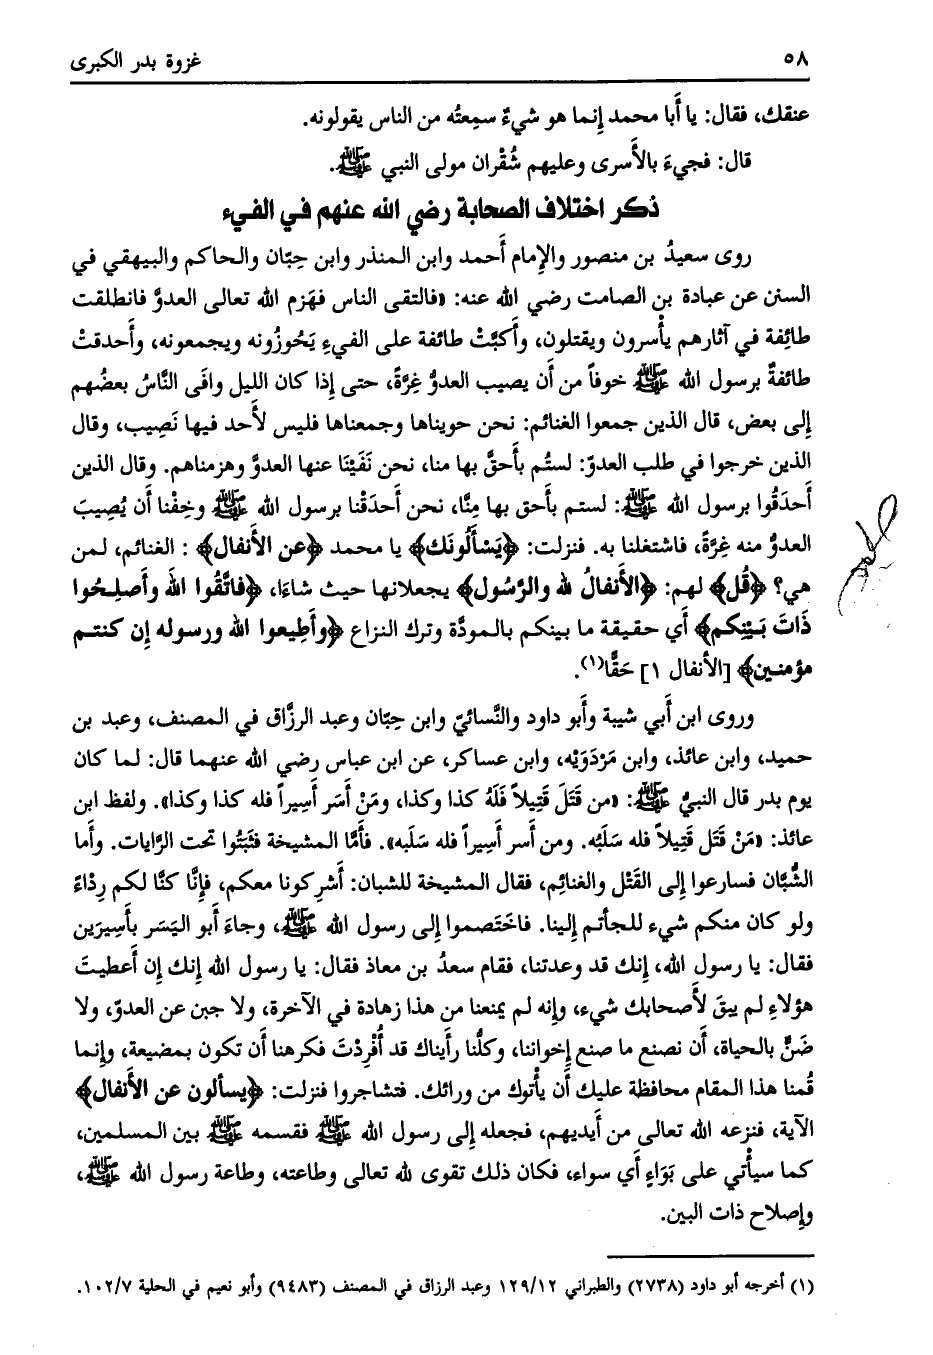 ٥٨
غزوة بدر الكبرى
عنقك، فقال: يا أَبا محمد إِنما هو شيءٌ سمِعتُه من الناس يقولونه.
قال: فجيءَ بالأَسرى وعليهم شُقْران مولى النبي ﷺ.
ذكر اختلاف الصحابة رضي الله عنهم في الفيء
روى سعيدُ بن منصور والإِمام أَحمد وابن المنذر وابن حِبّان والحاكم والبيهقي في
السنن عن عبادة بن الصامت رضي الله عنه: «فالتقى الناس فهَزم الله تعالى العدوَّ فانطلقت
طائِفة في آثارهم يأْسرون ويقتلون، وأَكبَّتْ طائفة على الفيءِ يَحُوزُونه ويجمعونه، وأَحدقتْ
طائفةٌ برسول الله ﷺ خوفاً من أَن يصيب العدوُّ غِرَّةً، حتى إِذا كان الليل وافَى النَّاسُ بعضُهم
إِلى بعض، قال الذين جمعوا الغنائم: نحن حويناها وجمعناها فليس لأَحد فيها نَصِيب، وقال
الذين خرجوا في طلب العدوّ: لستُم بأَحقَّ بها منا، نحن نَفَيْنَا عنها العدوَّ وهزمناهم. وقال الذين
أَحدَقُوا برسول الله ﷺ: لستم بأحق بها مِنَّا، نحن أَحدَقْنا برسول الله ﷺ وخِفْنا أَن يُصِيبَ
العدوُّ منه غِرَّةً، فاشتغلنا به. فنزلت: ﴿يَسْأَلُونَك﴾ يا محمد ﴿عن الأَنفال﴾ : الغنائم، لمن
هي؟ ﴿قُل﴾ لهم: ﴿الأَنفالُ لله والرَّسُول﴾ يجعلانها حيث شاءَا، ﴿فاتَّقُوا اللهَ وأَصلِحُوا
ذَاتَ بَيْنِكم﴾ أي حقيقة ما بينكم بالمودَّة وترك النزاع ﴿وأَطِيعوا الله ورسوله إن كنتم
مؤمنين﴾ [الأنفال ١] حَقًّا(١).
وروى ابن أَبي شيبة وأَبو داود والنَّسائيّ وابن حِبّان وعبد الرزَّاق في المصنف، وعبد بن
حميد، وابن عائذ، وابن مَرْدَوَيْه، وابن عساكر، عن ابن عباس رضي الله عنهما قال: لما كان
يوم بدر قال النبيُّ ﷺ: «من قَتَلَ قَتِيلاً فَلَهُ كذا وكذا، ومَنْ أَسَر أَسِيراً فله كذا وكذا». ولفظ ابن
عائذ: «مَنْ قَتَل قَتِيلاً فله سَلَبُه. ومن أسر أَسِيراً فله سَلَبه». فأَمَّا المشيخة فثَبَتُوا تحت الرَّايات. وأَما
الشُّبَّان فسارعوا إِلى القَتْل والغنائِم، فقال المشيخة للشبان: أَشرِكونا معكم، فإِنَّا كنَّا لكم رِدْاءً
ولو كان منكم شيء للجأتم إِلينا. فاخَتَصموا إِلى رسول الله ﷺ، وجاءَ أَبو اليَسَر بأَسِيرَين
فقال: يا رسول الله، إِنك قد وعدتنا، فقام سعدُ بن معاذ فقال: يا رسول الله إِنك إِن أَعطيتَ
هؤلاءِ لم يبقَ لأَصحابك شيء، وإِنه لم يمنعنا من هذا زهادة في الآخرة، ولا جبن عن العدوّ، ولا
ضَنٌّ بالحياة، أَن نصنع ما صنع إِخواننا، وكلُّنا رأَيناك قد أُفْرِدْتَ فكرهنا أَن تكون بمضيعة، وإِنما
قُمنا هذا المقام محافظة عليك أَن يأْتوك من ورائك. فتشاجروا فنزلت: ﴿يسألون عن الأَنفال﴾
الآية، فنزعه الله تعالى من أَيديهم، فجعله إِلى رسول الله ﷺ فقسمه ﷺ بين المسلمين،
كما سيأْتي على بَوَاءٍ أَي سواء، فكان ذلك تقوى لله تعالى وطاعته، وطاعة رسول الله ﷺ،
وإِصلاح ذات البين.
(١) أخرجه أبو داود (٢٧٣٨) والطبراني ١٢٩/١٢ وعبد الرزاق في المصنف (٩٤٨٣) وأبو نعيم في الحلية ١٠٢/٧.